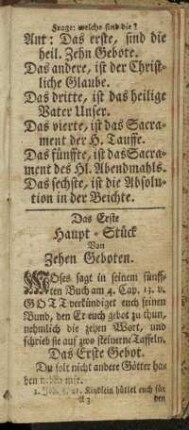 Frage: welche sind die?
Ant: Das erste, sind die
heil. Zehn Gebote.
Das andere, ist der Christ-
liche Glaube.
Das dritte, ist das heilige
Vater Unser.
Das vierte, ist das Sacra-
ment der H. Tauffe.
Das fünffte, ist das Sacra-
ment des Hl. Abendmahls.
Das sechste, ist die Absolu-
tion in der Beichte.
Das Erste
Haupt-Stück
Von
Zehen Geboten.
MOses sagt in seinem fünff-
ten Buch am 4. Cap. 13. v.
GOTT verkündiget euch seinen
Bund, den Er euch gebot zu thun,
nehmlich die zehen Wort, und
schrieb sie auf zwo steinerne Taffeln.
Das Erste Gebot.
Du solt nicht andere Götter ha-
ben neben mir.
1. Joh. 5. 21. Kindlein hütet euch für
den